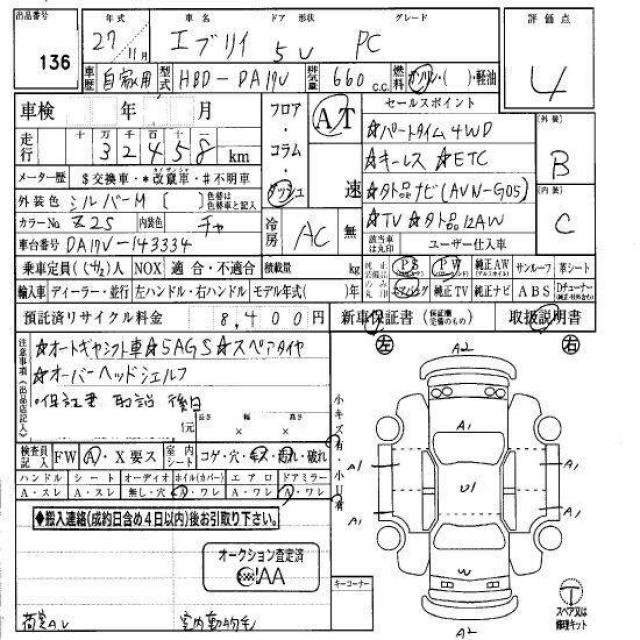 出品番号 年式 車名 ドア 形状 グレード 評価点
136 27 11月 エブリイ 5V PC 4
車歴 自家用 型式 HBD-DA17V 排気量 660 c.c. 燃料 ガソリン・( )・軽油
車検 年 月 フロア・コラム・ダッシュ AT 速 セールスポイント
☆パートタイム4WD (外装) B
走行 十 万 千 百 十
32458 km ☆キーレス ☆ETC
メーター歴 $交換車・*改竄車・#不明車 ☆外品ナビ(AVN-G05) (内装) C
外装色 シルバーM [ ] 色替は色替車と記入
☆TV ☆外品12AW
カラーNo. Z2S 内装色 チャ 冷房 AC 無
車台番号 DA17V-143334 該当車は丸印 ユーザー仕入車
乗車定員(4/2)人 NOX 適合・不適合 積載量 kg 純正装備にのみ丸印 PS PW 純正AW サンルーフ 革シート
輸入車 ディーラー・並行 左ハンドル・右ハンドル モデル年式( )年 エアバッグ 純正TV 純正ナビ ABS Dチューナー
預託済リサイクル料金 8,400円 新車保証書 (保証欄完備のもの) 取扱説明書
注意事項(出品店記入) ☆オートギヤシフト車☆5AGS☆スペアタイヤ
☆オーバーヘッドシェルフ
・保証書 取説 後日
元 長さ × 幅 × 高さ
左 右
小キズ有・小凹有
検査員記入 FW A・X要ス 室内シート コゲ・穴・キズ・汚れ・破れ
ハンドル シート オーディオ ホイル(カバー) エアロ ドアミラー
A・スレ A・スレ 無し・穴 A・ワレ A・ワレ A・ワレ
◆搬入連絡(成約日含め4日以内)後お引取り下さい。
オークション査定済
AA
キーコーナー
室内動物毛
A2
A1
A1 A1
U1
A1 A1
W
A2
T
スペア又は修理キット